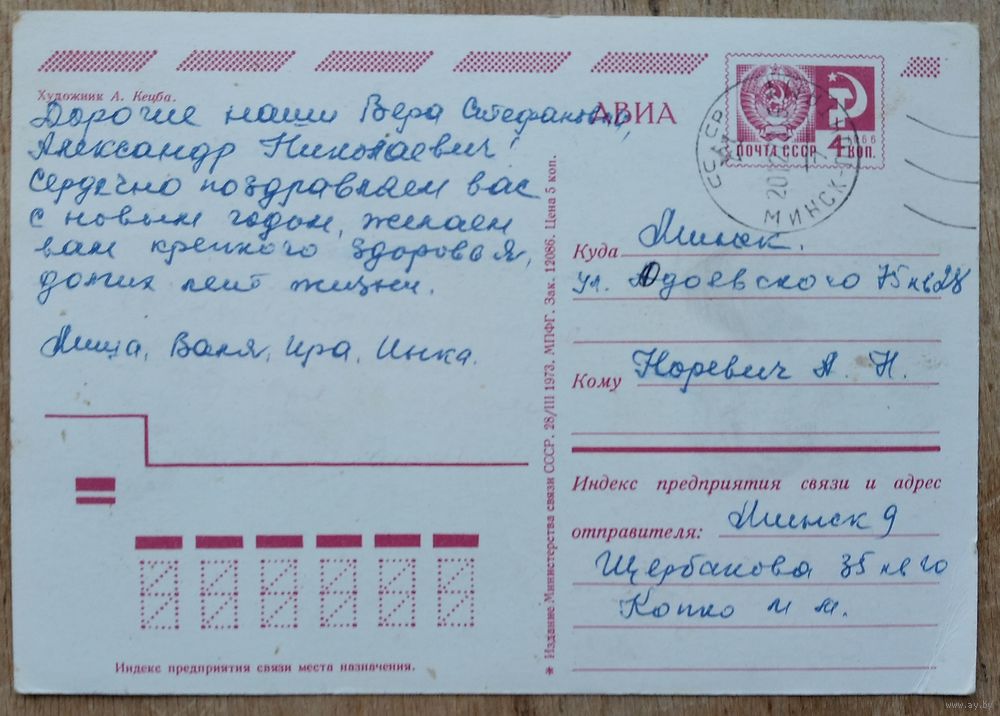 Художник А. Кецба.
АВИА
Дорогие наши Вера Стефановна,
Александр Николаевич!
Сердечно поздравляем вас
с новым годом, желаем
вам крепкого здоровья,
долгих лет жизни.
Миша, Валя, Ира, Инка.
Индекс предприятия связи места назначения.
* Издание Министерства связи СССР. 28/III 1973. МПФГ. Зак. 12086. Цена 5 коп.
ПОЧТА СССР 4 КОП.
1966
МИНСК
Куда Минск.
ул. Одоевского 75 кв 28
Кому Норевич А. Н.
Индекс предприятия связи и адрес
отправителя: Минск 9
Щербакова 35 кв 10
Копко М М.
www.ay.by